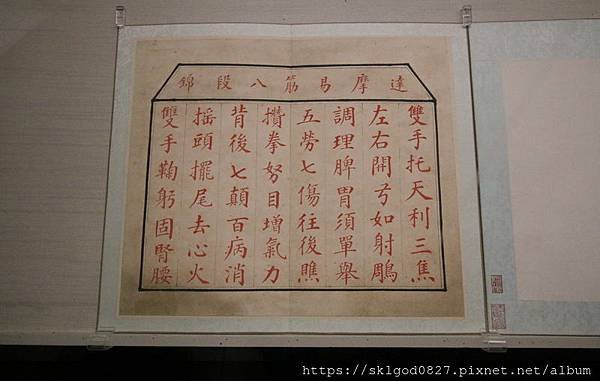 達摩易筋八段錦
雙手托天利三焦
左右開弓如射鵰
調理脾胃須單舉
五勞七傷往後瞧
攢拳努目增氣力
背後七顛百病消
摇頭擺尾去心火
雙手鞠躬固腎腰
https://sklgod0827.pixnet.net/album